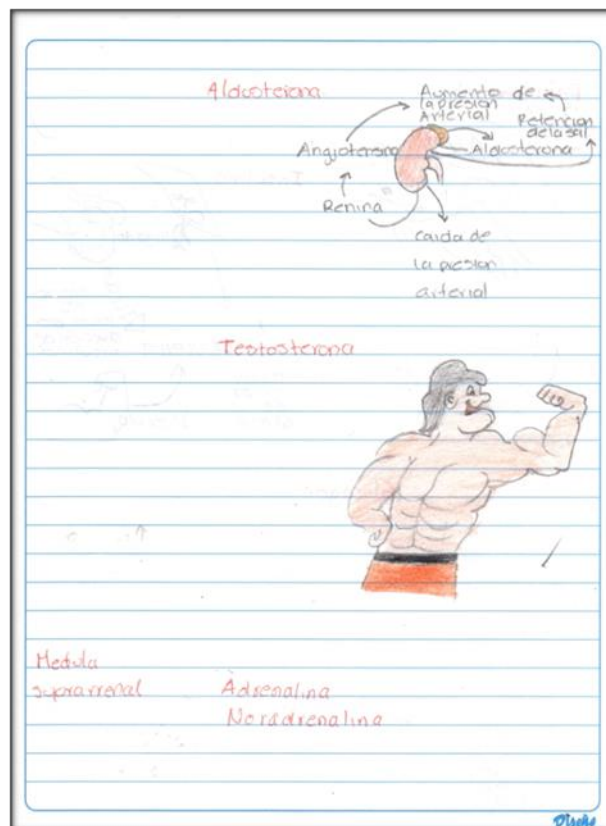 Aldosterona
Aumento de
la presion
Arterial
Retencion
de la sal
Angiotensina
Aldosterona
Renina
caida de
la presion
arterial
Testosterona
Medula
suprarrenal
Adrenalina
Noradrenalina